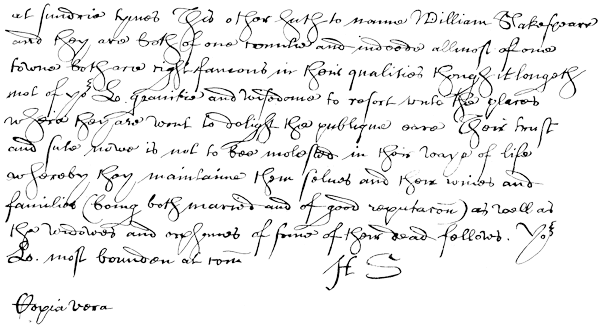 at sundrie tymes This other hath to name William Shakespeare
and they are both of one countie and indeede allmost of one
towne both are right famous in their qualities though it longeth
not of yor Lo. grauitie and wisedome to resort vnto the places
where they are wont to delight the publique eare Their trust
and sute nowe is not to bee molested in their waye of life
whereby they maintaine them selues and their wives and
families (being both maried and of good reputacon) as well as
the widowes and orphanes of some of their dead fellows. Yor
Lo. most bounden at com
H S
Copia vera